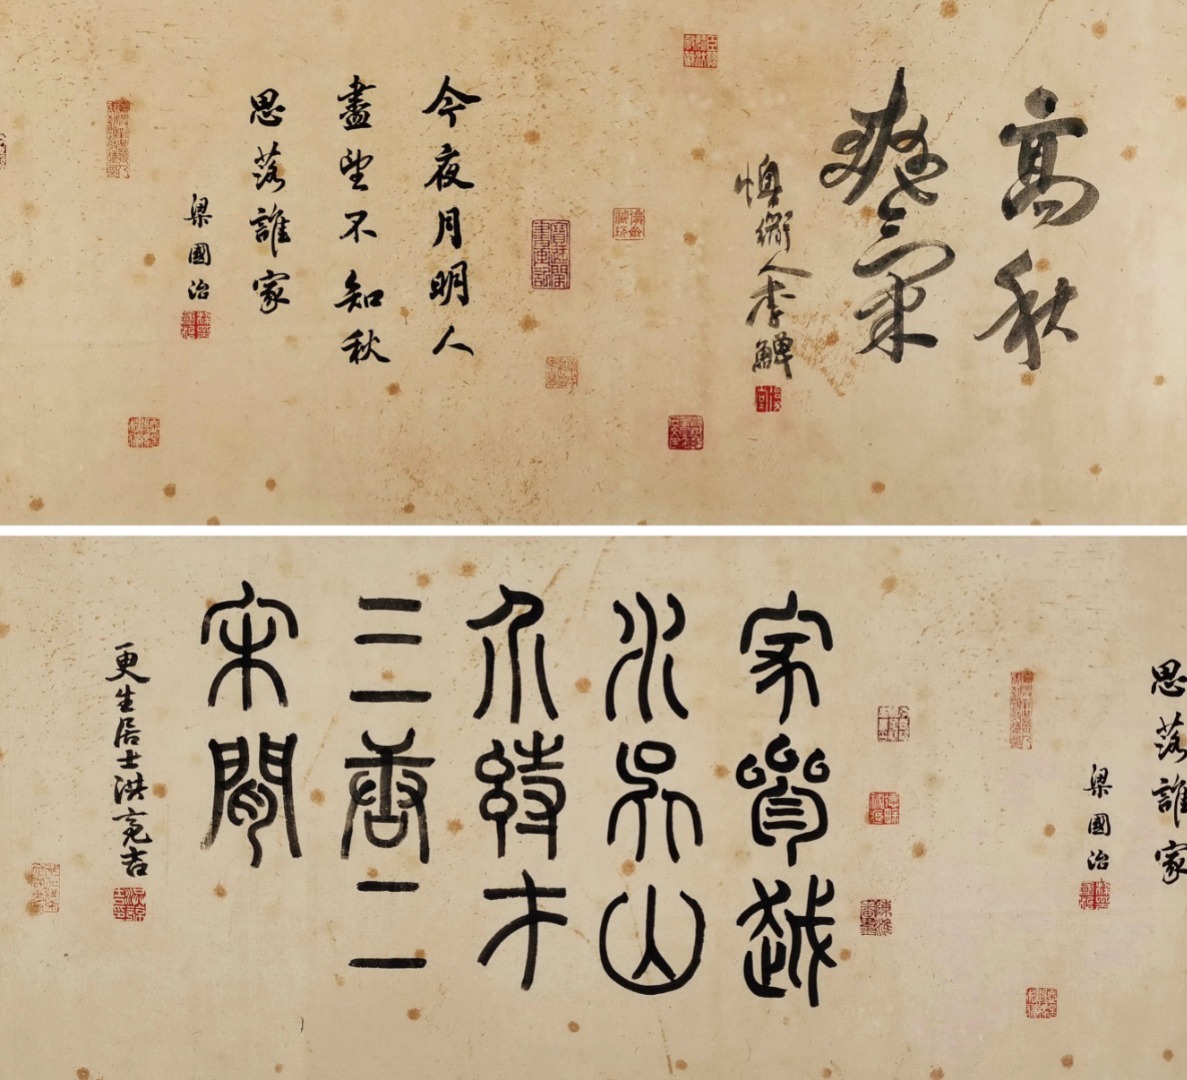 高秋
爽氣
懊衜人李觶
今夜月明人
盡望不知秋
思落誰家
梁國治
思落誰家
梁國治
家越
水吳山
介才
三唐二
宋間
更生居士洪亮吉